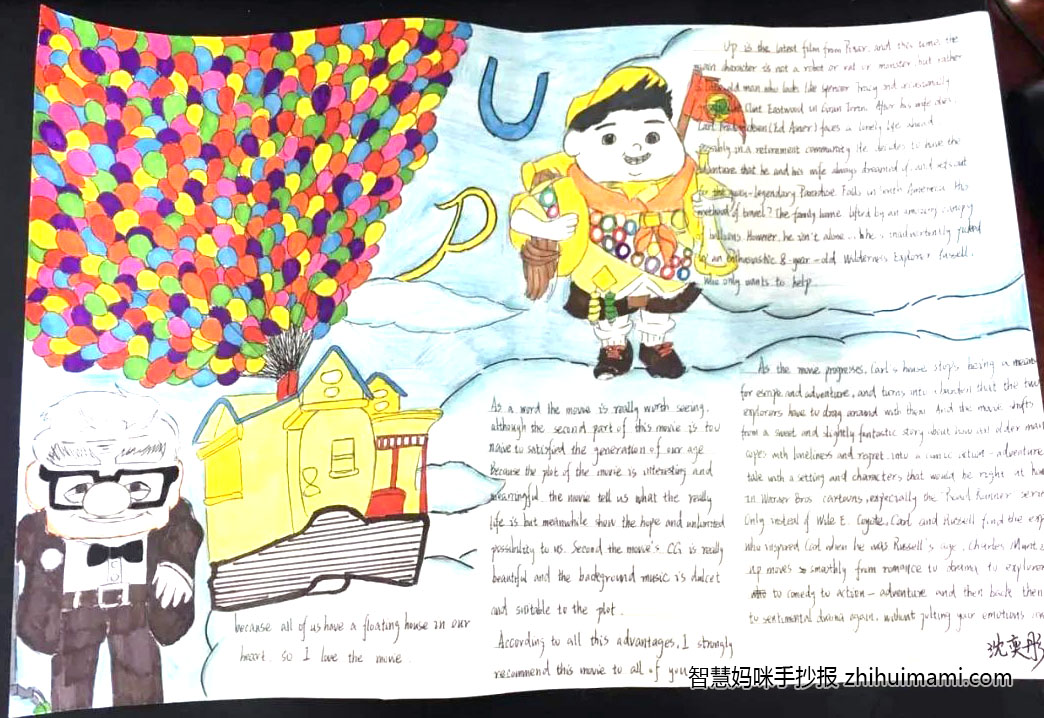 UP
Up is the latest film from Pixar, and this time, the
main character is not a robot or rat or monster, but rather
old man who looks like Spencer Tracy and occasionally
Clint Eastwood in Gran Torino. After his wife dies,
Carl (Ed Asner) faces a lonely life ahead
possibly in a retirement community. He decides to have the
adventure that he and his wife always dreamed of, and sets out
for the legendary Paradise Falls in South America. His
method of travel? The family home lifted by an amazing canopy
balloons. However, he isn't alone. he is inadvertently joined
by an enthusiastic 8-year-old Wilderness Explorer
who only wants to help.
As the movie progresses, Carl's house stops being a means
for escape and adventure, and turns into a burden that the two
explorers have to drag around with them. And the movie shifts
from a sweet and slightly fantastic story about how an older man
copes with loneliness and regret, into a comic action-adventure
tale with a setting and characters that would be right at
in Warner Bros cartoons, especially the Road Runner
Only instead of Wile E. Coyote, Carl and Russell find the
who inspired Carl when he was Russell's age, Charles
up moves smoothly from romance to drama to
to comedy to action-adventure and then back
to sentimental drama again, without putting your emotions
As a word the movie is really worth seeing,
although the second part of this movie is too
naive to satisfied the generation of our age.
Because the plot of the movie is interesting and
meaningful, the movie tell us what the really
life is but meanwhile show the hope and unlimited
possibility to us. Second the movie's CG is really
beautiful and the background music is dulcet
and suitable to the plot.
According to all this advantages, I strongly
recommend this movie to all of you
because all of us have a floating house in our
heart. so I love the movie.
沈奕彤
智慧妈咪手抄报 zhihuimami.com